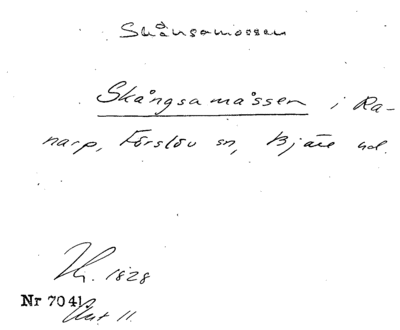 Skånsamossen
Skångsamåssen i Ra-
narp, Förslöv sn, Bjäre hd.
1828
Nr 7041
Akt 11.